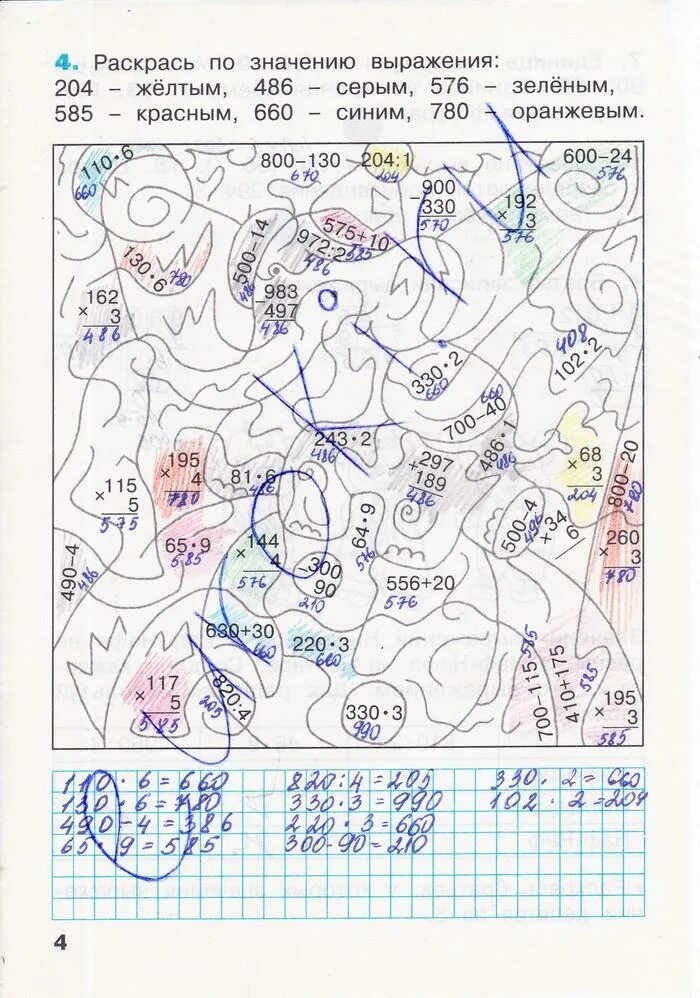 4. Раскрась по значению выражения:
204 – жёлтым, 486 – серым, 576 – зелёным,
585 – красным, 660 – синим, 780 – оранжевым.
110·6
660
800–130
670
204:1
204
600–24
576
–900
330
570
×192
3
576
575+10
585
972:2
486
500–14
486
130·6
780
–983
497
486
×162
3
486
330·2
660
408
102·2
700–40
660
243·2
486
+297
189
486
486·1
486
×68
3
204
800–20
780
×195
4
780
81·6
486
×115
5
575
65·9
585
×144
4
576
64·9
576
500–4
496
×34
6
×260
3
780
490–4
486
–300
90
210
556+20
576
630+30
660
220·3
660
×117
5
585
820:4
205
330·3
990
700–115
585
410+175
585
×195
3
585
110·6=660 820:4=205 330·2=660
130·6=780 330·3=990 102·2=204
490–4=386 220·3=660
65·9=585 300–90=210
4